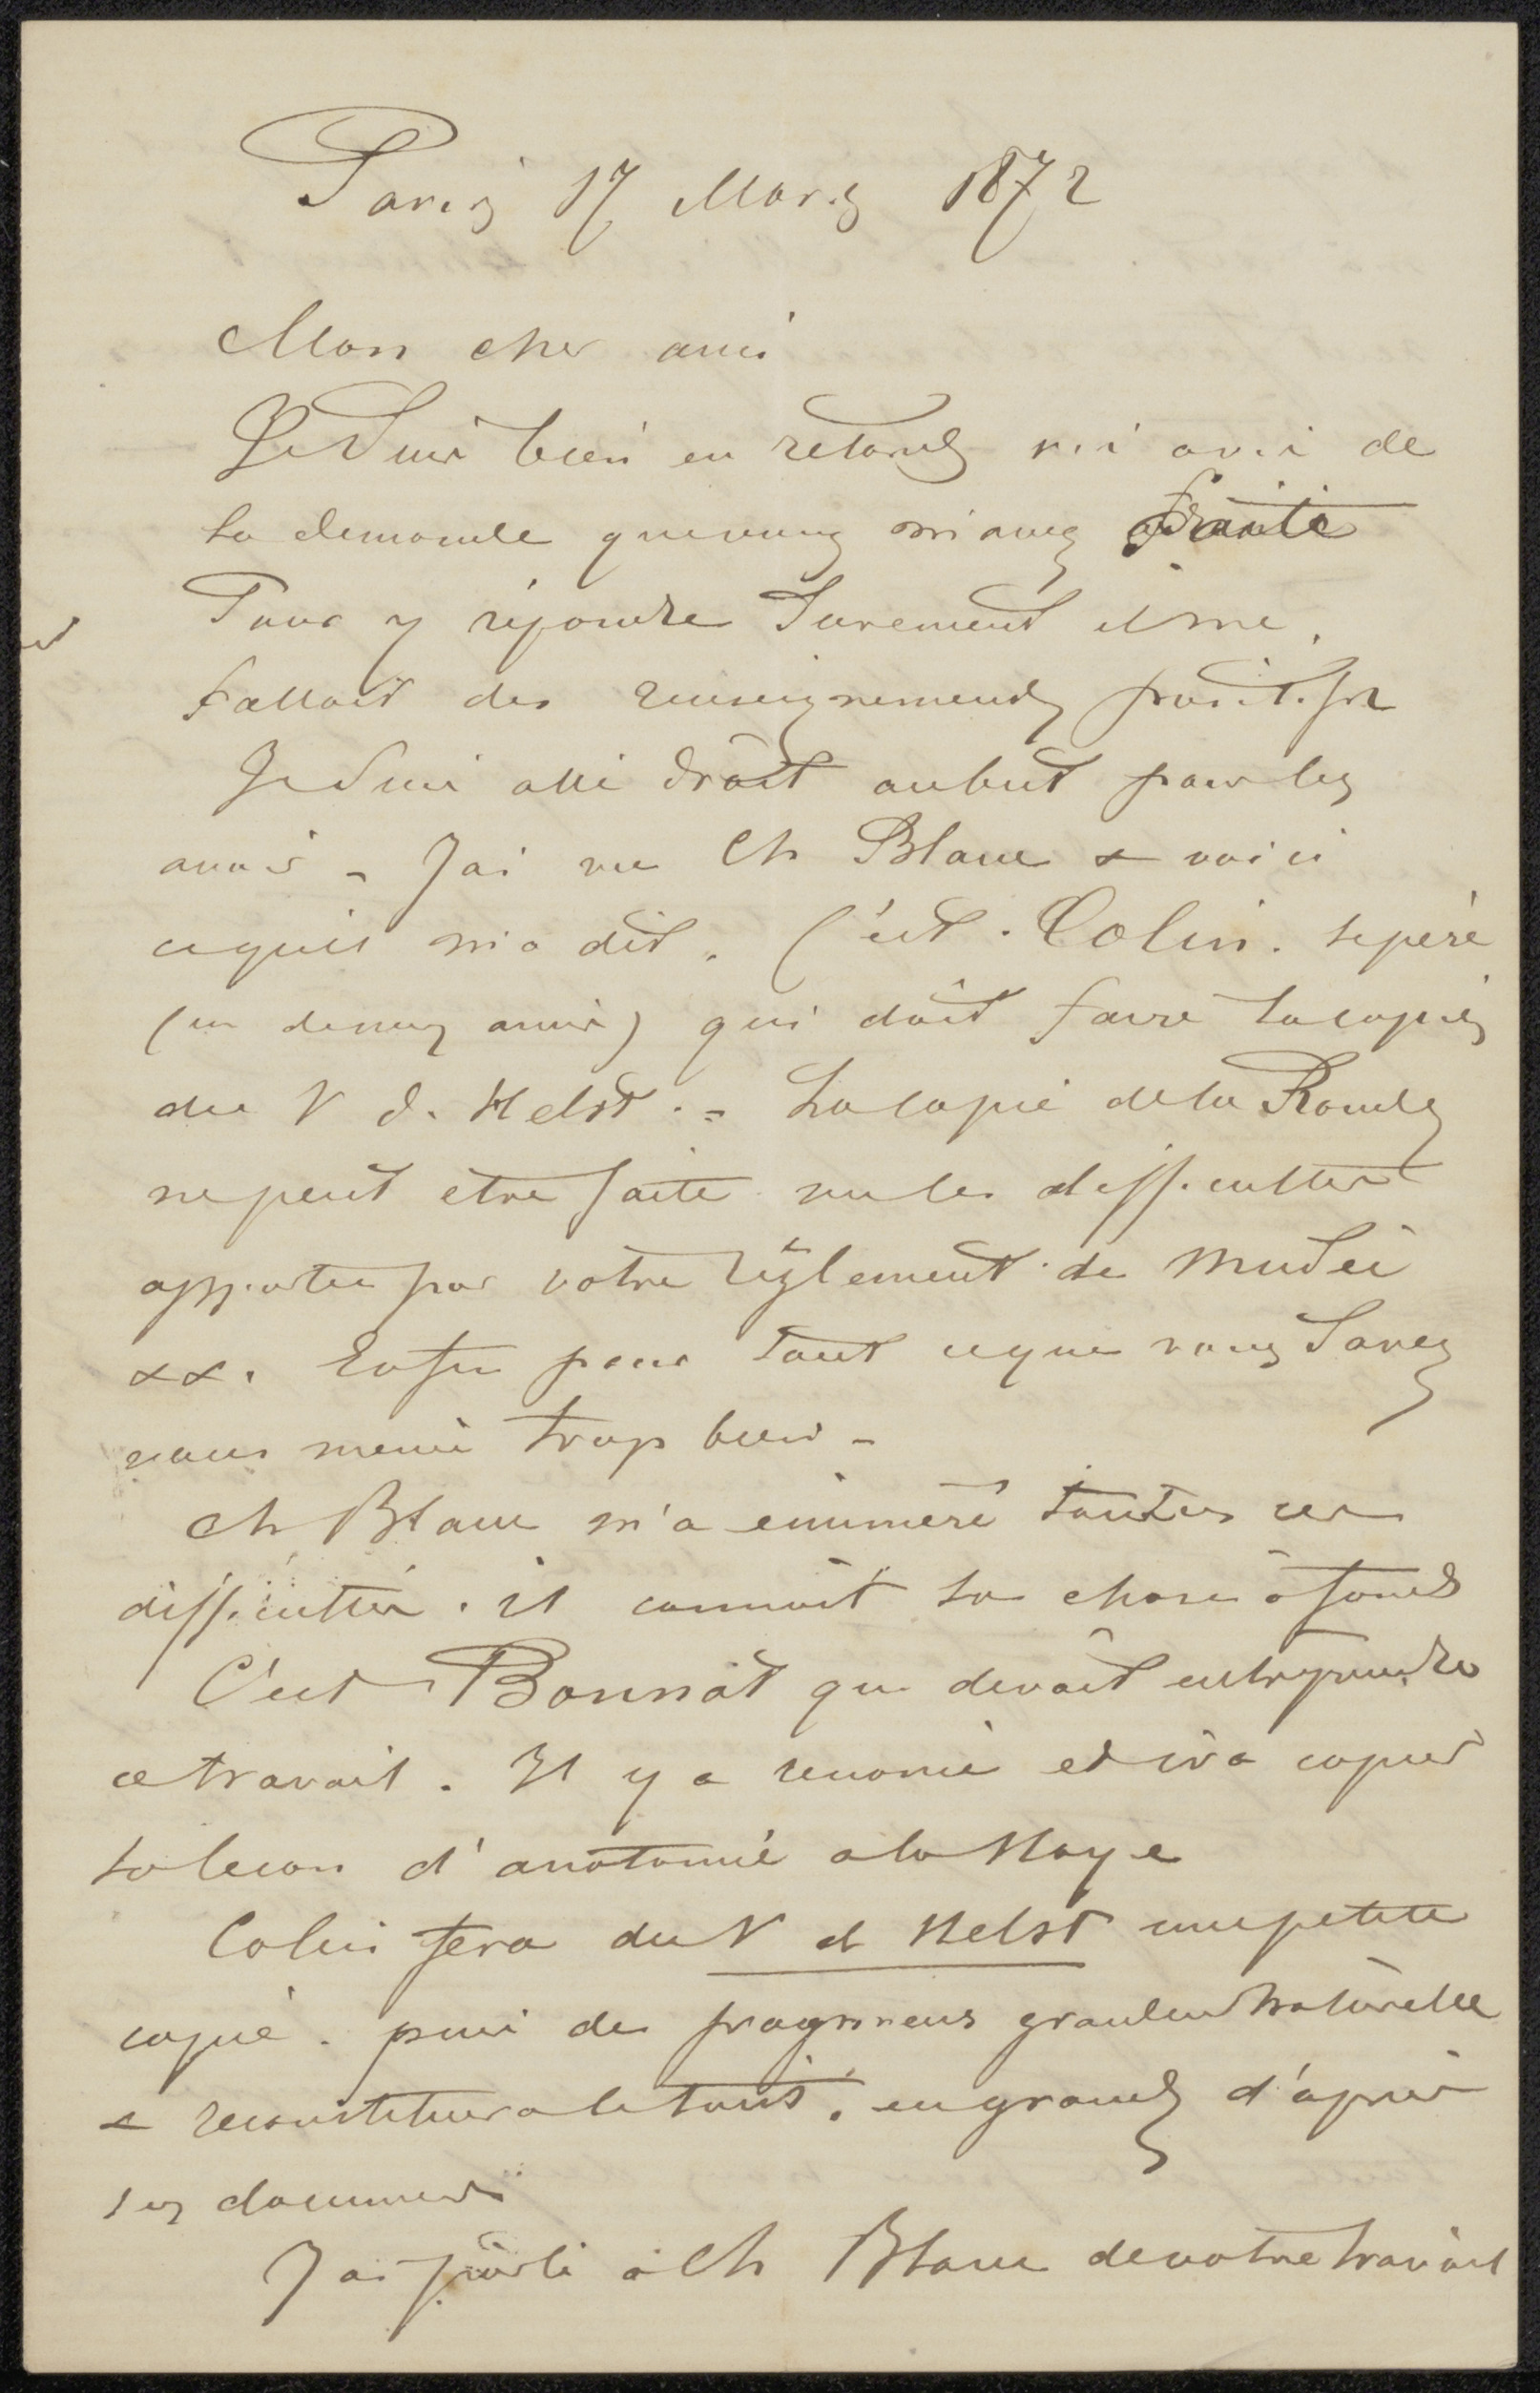 Paris 17 Mars 1872
Mon cher ami
Je suis bien en retard vis a vis de
la demande que vous m'avez faite
Pour y répondre surement il me
fallait des renseignements positifs
Je suis allé droit au but pour les
avoir – J'ai vu Ch Blanc & voici
ce quil m'a dit. C'est. Colin. le père
(un de nos amis) qui doit faire la copie
du V d. Helst. = La copie de la Ronde
ne peut etre faite vu les difficultés
apportées par votre réglement de musée
&&. Enfin pour tout ce que vous savez
vous meme trop bien –
Ch Blanc m'a énuméré toutes ces
difficultés. il connait la chose à fond
C'est Bonnat qui devait entreprendre
ce travail. Il y a renoncé et ira copier
la lecon d'anatomie a la Haye
Colin fera du V d Helst une petite
copie. puis des fragmens grandeur naturelle
& reconstituera le tout. en grand d'après
ses documents
J'ai parlé à Ch Blanc de votre travail